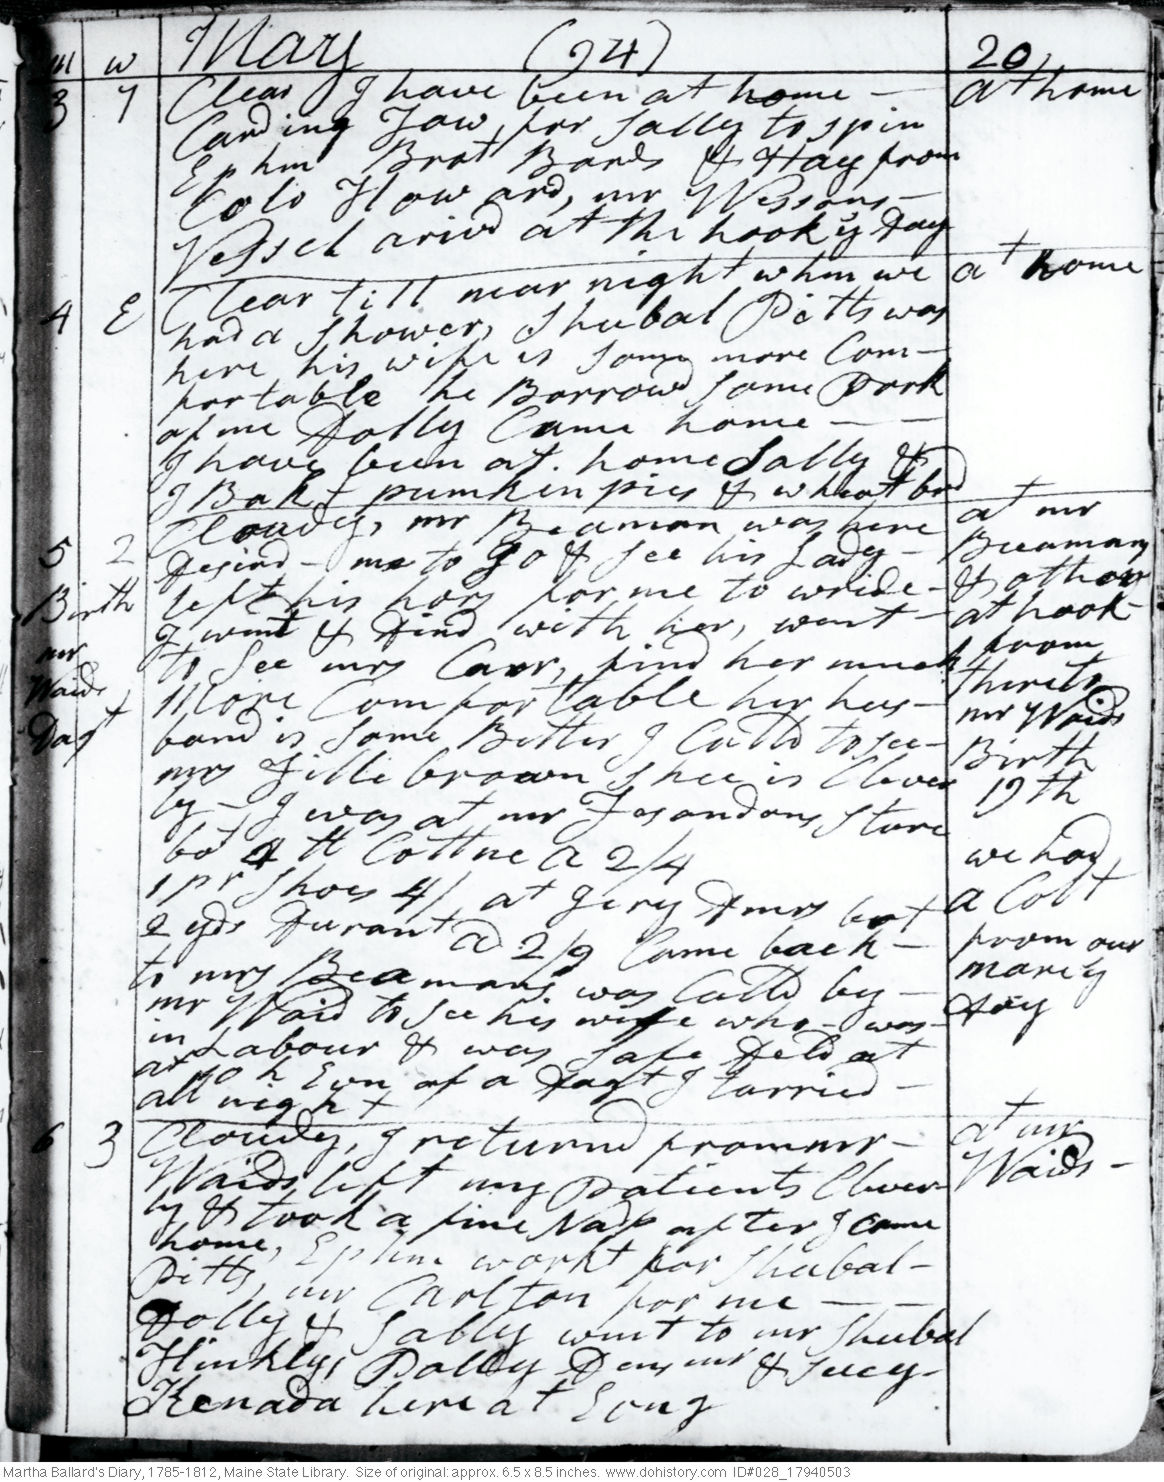 m w May (94) 20,
3 7 Clear I have been at home — at home
Carding Tow, for Sally to spin
Ephm Brot Bords & Hay from
Colo Howard, mr Wessons —
Vessel arivd at the hook ye Day
4 E Clear till near night when we at home
had a Shower, Shubal Pitts was
here his wife is Some more Com—
fortable he Borrowd Some Pork
of me Dolly Came home — —
I have been at home Sally &
I Bakt pumkin pies & wheat brd
5 2 Cloudy, mr Beaman was here at mr
Desird — me to go & See his Lady — Beamans
Birth left his hors for me to wride — & other
I went & dind with her, went — at hook
mr to See mrs Carr, find her much from
Waids more Comfortable her hus— there to
Dagt band is Some Better I Calld to See — mr Waids
mrs Fillebrown Shee is Clever Birth
ly — I was at mr Store 19th
bot 4 lb Cottne a 2/4 we had
1 pr Shoes 4/ at Jery bot a Colt
2 yds Durant @ 2/9 Came back — from our
to mrs Beamans was Calld by — mare ys
mr Waid to See his wife who — was — day
in Labour & was Safe Deld at
at 10 h Evn of a Dagt I tarried —
all night
6 3 Cloudy, I returnd from mr — at mr
Waids left my patients Clever Waids —
ly & took a fine Nap after I came
home, Ephm workt for Shubal —
Pitts, mr Carlton for me — —
Dolly & Sally went to mr Shubal
Hinklys, Polly & Lucy —
Kenada here at Evng
Martha Ballard's Diary, 1785-1812, Maine State Library. Size of original: approx. 6.5 x 8.5 inches. www.dohistory.com ID#028_17940503